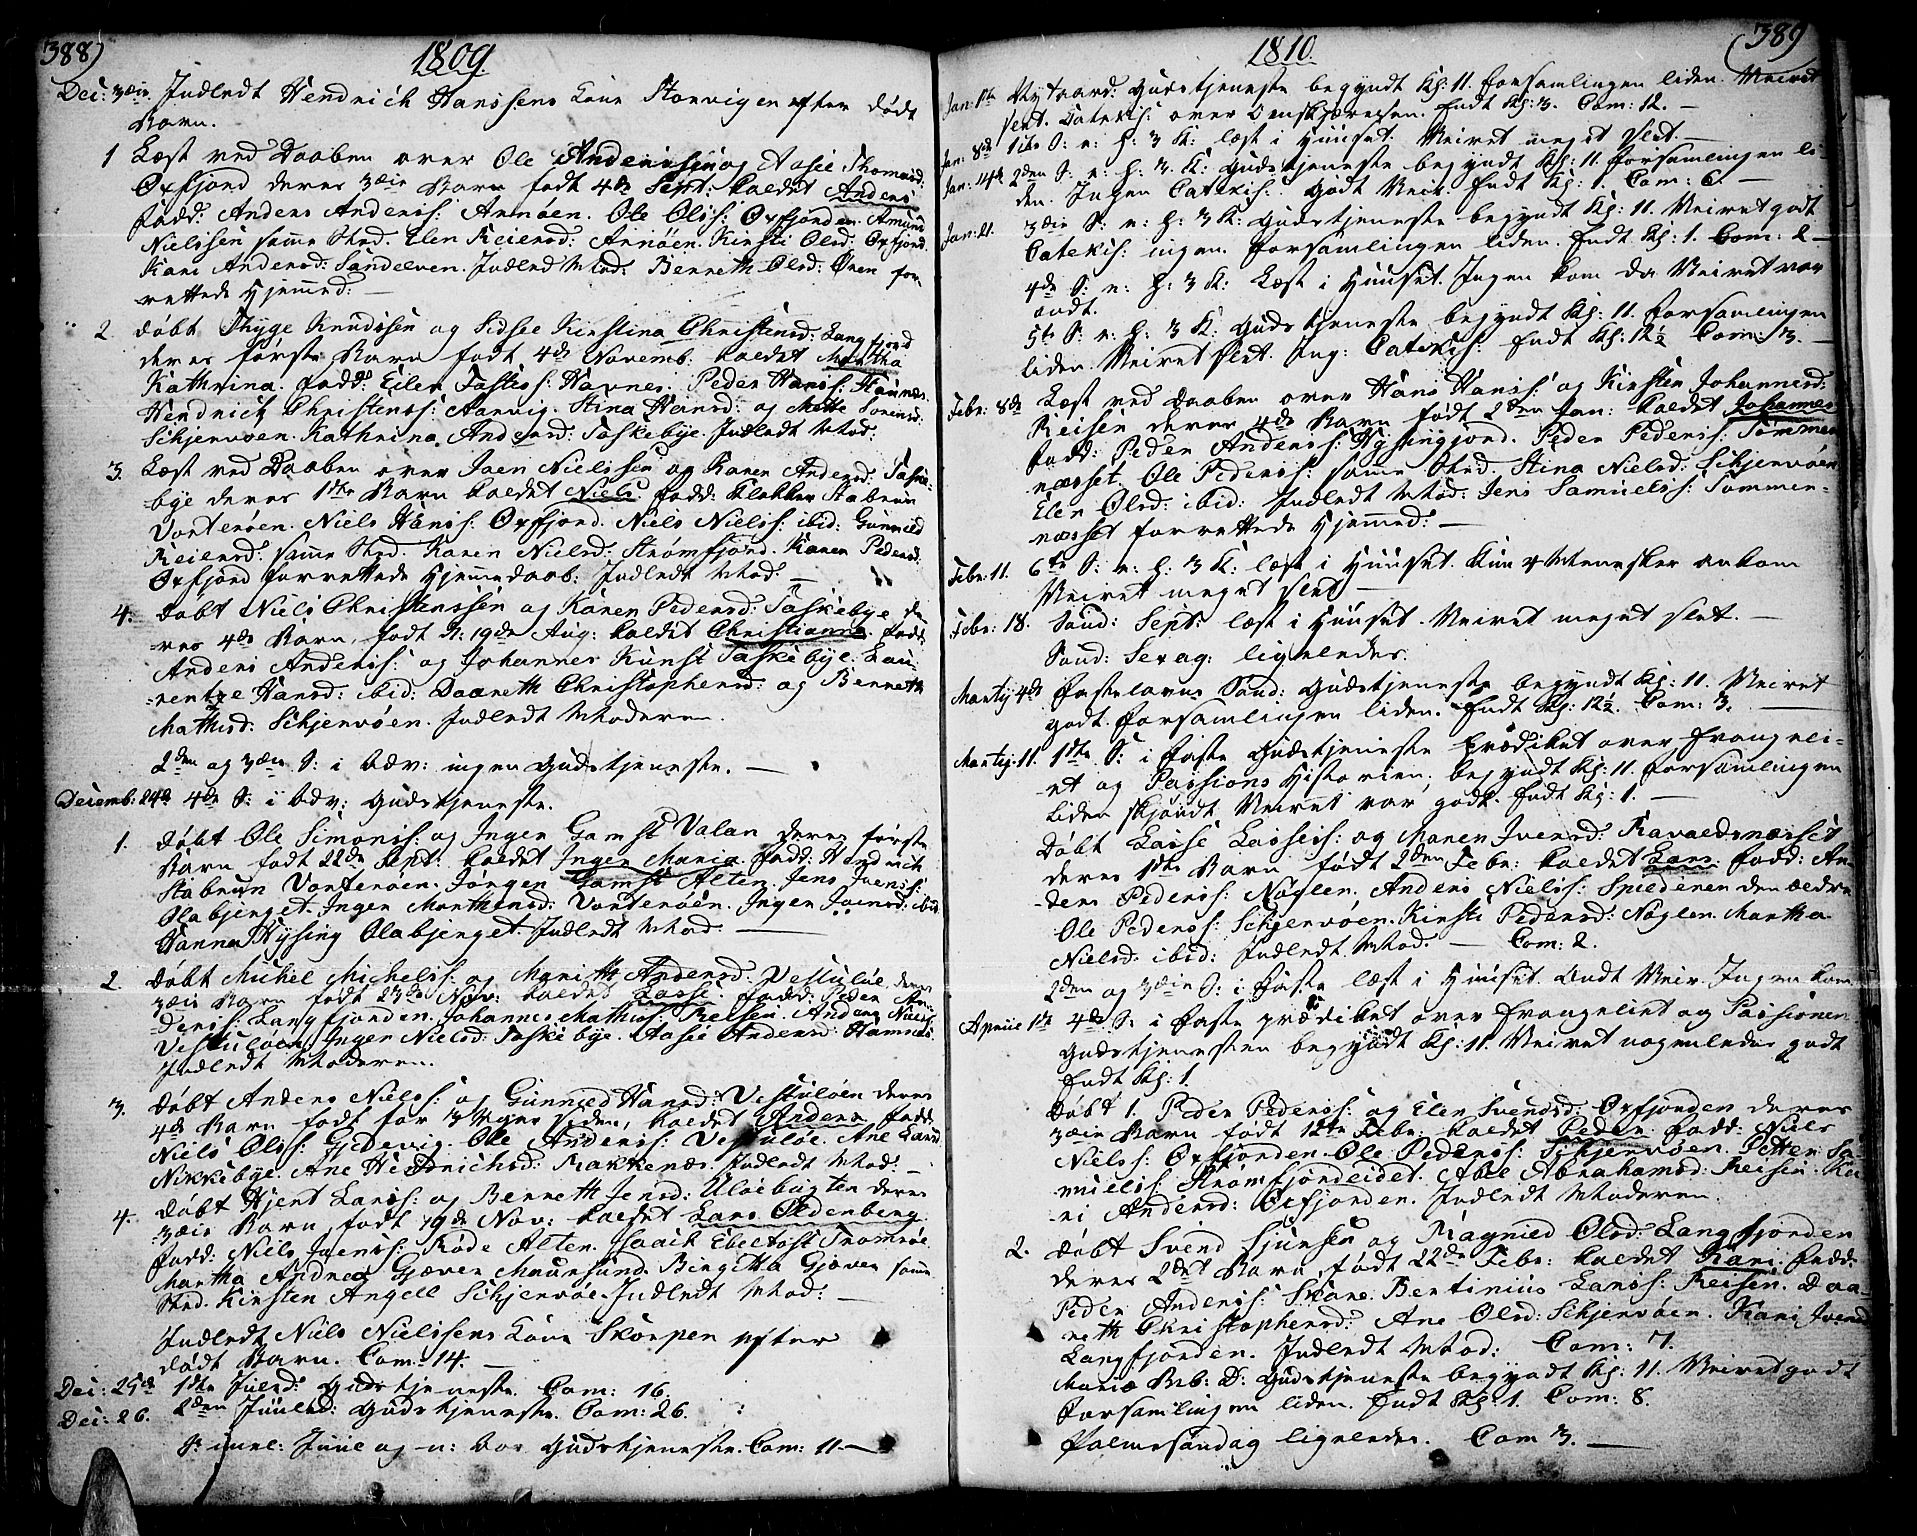 388)
1809
Dec: 3die. Indledt Hendrich Hanssens Kone Storvigen efter dødt
Barn.
1 Læst ved Daaben over Ole Anderssen og Aasie Thomasd:
Oxfjord deres 3die Barn født 4de Sept: kaldet Anders
Fadd: Anders Anderss: Arnøen. Ole Olss: Oxfjorden. Amund
Nielssen samme Sted. Elen Reiersd: Arnøen. Kirsti Olsd: Oxfjord.
Kari Andersd: Sandelven. Indled Mod: Berreth Olsd: Øren for
rettede Hjemmed:
2. Døbt Thyge Knudssen og Sidsel Kirstina Christensd: Langfjord
deres første Barn født 4de Novemb. kaldet Martha
Kathrina. Fadd: Eiler Havnes. Peder Hanss: Havnes.
Hendrich Christenss: Aarvig. Stina Hansd: og Mette Sørensd:
Schjervøen. Kathrina Andersd: Taskebye. Indledt Mod:
3. Læst ved Daaben over Joen Nielssen og Karen Andersd: Taske-
bye deres 1ste Barn kaldet Niels Fadd: Klokker Stabrun
Vorterøen. Niels Hanss: Oxfjord. Niels Nielss: ibid: Gunnild
Reiersd: samme Sted. Karen Nielsd: Strømfjord. Karen Pedersd:
Oxfjord forrettede Hjemmedaab. Indledt Mod:
4. Døbt Niels Christenssen og Karen Pedersd: Taskebye de
res 4de Barn, født d: 19de Aug: kaldet Christianna. Fadd:
Anders Anderss: og Johannes Kunst Taskebye. Lau-
rentze Hansd: ibid: Daareth Christophersd: og Berreth
Mathisd: Schjervøen. Indledt Moderen.
2den og 3die S: i Adv: ingen Gudstjeneste.
Decemb: 24de 4de S: i Adv: Gudstjeneste.
1. Døbt Ole Simonss: og Inger Gamst Valan deres første
Barn født 22de Sept: kaldet Inger Maria. Fadd: Hendrich
Stabrun Vorterøen. Jørgen Gamst Alten. Jens Iverss:
Olabjerget. Inger Morthensd: Vorterøen. Inger Iversd: ibid
Hanna Hysing Olabjerget. Indledt Mod.
2. Døbt Michel Michelss: og Marith Andersd: Vestuløe deres
3die Barn født 23de Nov: kaldet Lasse. Fadd: Peder An-
derss: Langfjorden. Johannes Mathiss: Reisen. Anders Nielss:
Vestuløen. Inger Nielsd: Taskebye. Aasie Andersd: Hamnes.
Indledt Moderen.
3. Døbt Anders Nielss: og Gunnild Hansd: Vestuløen deres
4de Barn født for 3 Uger siden, kaldet Anders Fadd:
Niels Olss: Gjedevig. Ole Anderss: Vestuløe. Ane Larsd
Nikkebye. Ane Hendrichsd: Rakkenæs. Indledt Mod.
4. Døbt Hjert Larss: og Berreth Jensd: Uløebugten deres
3die Barn, født 19de Nov: kaldet Lars Oldenberg.
Fadd: Niels Iverss: Røde Alten. Isaach Ebeltoft Tromsøe
Martha Andrea Gjæver Maursund. Birgitta Gjæver samme
Sted. Kirsten Angell Schjervøe. Indledt Mod:
Indledt Niels Nielssens Kone Skorpen efter
dødt Barn. Com: 14.
Dec: 25de 1ste Juled: Gudstjeneste. Com: 16.
Dec: 26. 2den Juuled: Gudstjeneste. Com: 26.
S: mel: Juule og n: Aar Gudstjeneste. Com: 11.
1810.
(389
Jan: 1ste Nytaarsd: Gudstjeneste begyndt Kl: 11. Forsamlingen liden. Veiret
slet. Catekis: over Omskjærelsen. Endt Kl: 3. Com: 12.
Jan: 8de 1ste S: e: H: 3 K: læst i Huuset. Veiret meget slet.
Jan: 14de 2den S: e: H: 3 K: Gudstjeneste begyndt Kl: 11. Forsamlingen li-
den. Ingen Catekis: Godt Veir. Endt Kl: 1. Com: 6.
Jan: 21. 3die S: e: H: 3 K: Gudstjeneste begyndt Kl: 11. Veiret godt
Catekis: ingen. Forsamlingen liden. Endt Kl: 1. Com: 2
4de S: e: H: 3 K: Læst i Huuset. Ingen kom da Veiret var
ondt.
5te S: e: H: 3 K: Gudstjeneste begyndt Kl: 11. Forsamlingen
liden. Veiret slet. Ing: Catekis: Endt Kl: 12½ Com: 3.
Febr: 8de Læst ved Daaben over Hans Hanss: og Kirsten Johannesd:
Reisen deres 4de Barn født 2den Jan: kaldet Johannes
Fadd: Peder Anderss: Hysingjord. Peder Pederss: Sommer
næsset. Ole Pederss: samme Sted. Stina Nielsd: Schjervøen
Elen Olsd: ibid: Indledt Mod: Jens Samuelss: Sommer-
næsset forrettede Hjemmed:
Febr: 11. 6te S: e: H: 3 K: læst i Huuset. Kun 4 Mennesker ankom
Veiret meget slet
Febr: 18. Sønd: Sept: læst i Huuset. Veiret meget slet.
Sønd: Sexag: ligeledes.
Martij 4de Fastelavns Sønd: Gudstjeneste begyndt Kl: 11. Veiret
godt. Forsamlingen liden. Endt Kl: 12½. Com: 3.
Martij 11. 1ste S: i Faste Gudstjeneste Prædiket over Evangeli-
et og Passions Historien, begyndt Kl: 11. Forsamlingen
liden skjøndt Veiret var godt. Endt Kl: 1.
Døbt Lasse Lassess: og Maren Iversd: Ravaldsnæsset
deres 1ste Barn født 2den Febr: kaldet Lars. Fadd: An-
ders Pederss: Noglen. Anders Nielss: Spilderen den ældre
Ole Pederss: Schjervøen. Kirsti Pedersd: Noglen. Martha
Nielsd: ibid: Indledt Mod. Com: 2.
2den og 3die S: i Faste læst i Huuset. Ondt Veir. Ingen kom
Aprile 1ste 4de S: i Faste prædiket over Evangeliet og Passionen
Gudstjenesten begyndt Kl: 11. Veiret nogenledes godt
Endt Kl: 1.
Døbt 1. Peder Pederss: og Elen Svendsd: Oxfjorden deres
3die Barn født 12te Febr: kaldet Peder. Fadd: Niels
Nielss: Oxfjorden. Ole Pederss: Schjervøen. Petter Sa-
muelss: Strømfjordeidet. Abel Abrahamsd: Reisen. Ka-
ri Andersd: Oxfjorden. Indledt Moderen.
2. Døbt Svend Sjursen og Ragnild Olsd: Langfjorden
deres 2det Barn, født 22de Febr: kaldet Kari. Fadd:
Peder Anderss: Skare. Bertinius Larss: Reisen. Daa-
reth Christophersd: Ane Olsd: Schjervøen. Kari Iversd
Langfjorden. Indledt Mod: Com: 7.
Mariæ Beb: D: Gudstjeneste begyndt Kl: 11. Veiret godt
Forsamlingen liden. Endt Kl: 1. Com: 8.
Palmesøndag ligeledes. Com 3.